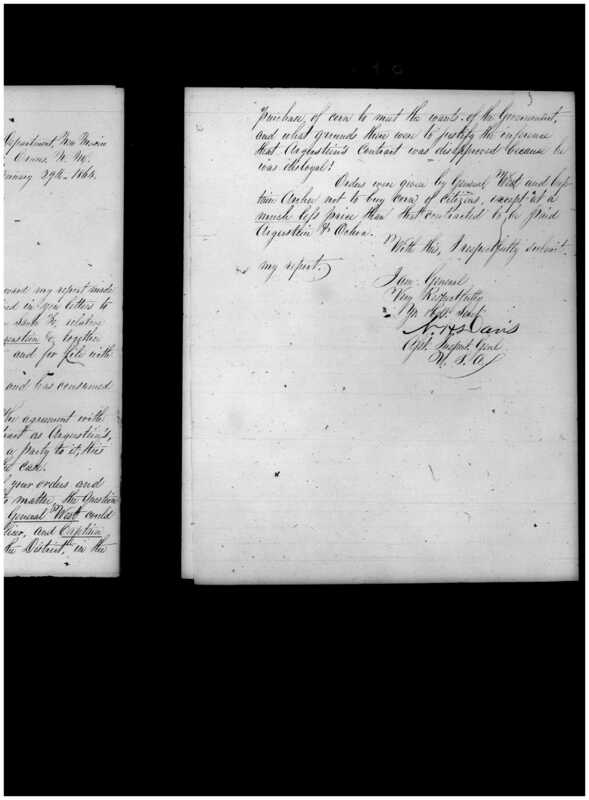 Department, New Mexico
N. M.
January 29th. 1864.
my report made
in your letters to
relative
together
and for file with
and has consumed
the agreement with
as Angerstein's,
a party to it, this
the case.
your orders and
matter, the question
General West could
and Captain
the District, in the
purchase, of corn to meet the wants of the Government,
and what grounds there were to justify the inference
that Angerstein's Contract was disapproved because he
was disloyal?
Orders were given by General West and Cap-
tain Archer not to buy corn of citizens, except at a
much less price than that contracted to be paid
Angerstein & Ochoa.
With this, I respectfully submit
my report.
I am General
Very Respectfully
Yr. Obt. Servt.
N. H. Davis
Asst. Inspect. Genl
U. S. A.